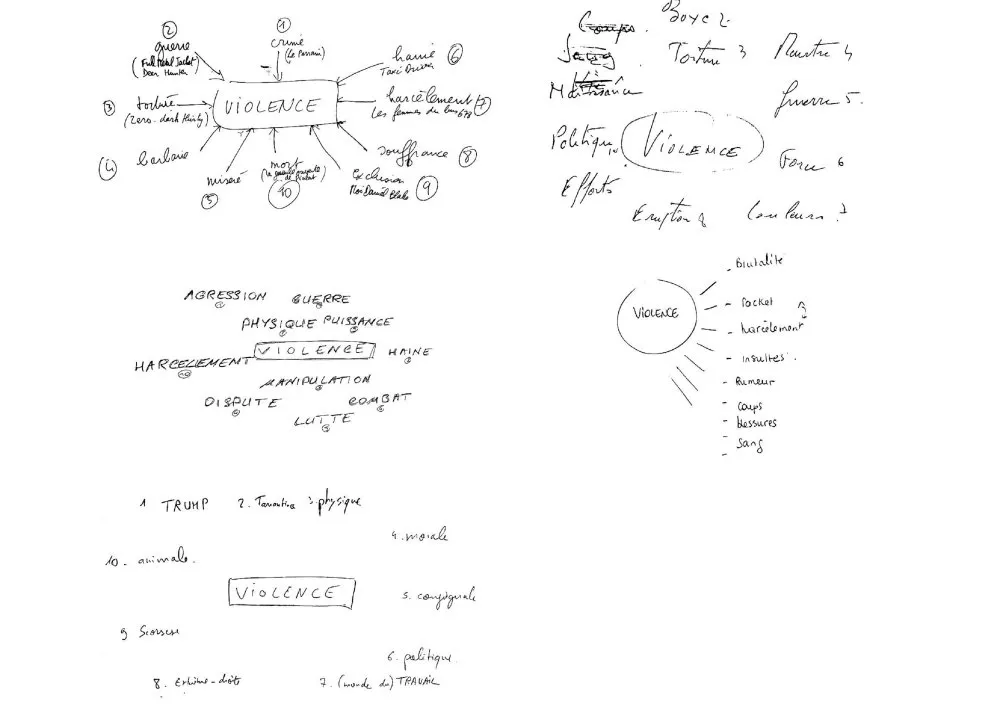 ②
①
guerre
(Full Metal Jacket)
Deer Hunter
crime
(Le Parrain)
haine ⑥
Taxi Driver
③ torture
(Zero-dark thirty)
VIOLENCE
harcèlement ⑦
Les femmes du bus 678
④ barbarie
misere
⑤
mort
⑩
Exclusion
Moi Daniel Blake ⑨
souffrance ⑧
Boxe 2.
Coups.
Sang
Torture 3
Meurtre 4
Guerre 5.
Politique
VIOLENCE
Force 6
Efforts
Eruption 8
Couleurs 7
AGRESSION
GUERRE
PHYSIQUE PUISSANCE
HARCELLEMENT
VIOLENCE
HAINE
MANIPULATION
DISPUTE
COMBAT
LUTTE
VIOLENCE
- Brutalité
- harcèlement
- insultes.
- Rumeur
- Coups
- blessures
- Sang
-
1 TRUMP 2. Tarantino 3 physique
4. morale
10. animale.
VIOLENCE
5. conjuguale
9 Scorsese
6. politique.
8. Extrême-droite
7. (monde du) TRAVAIL